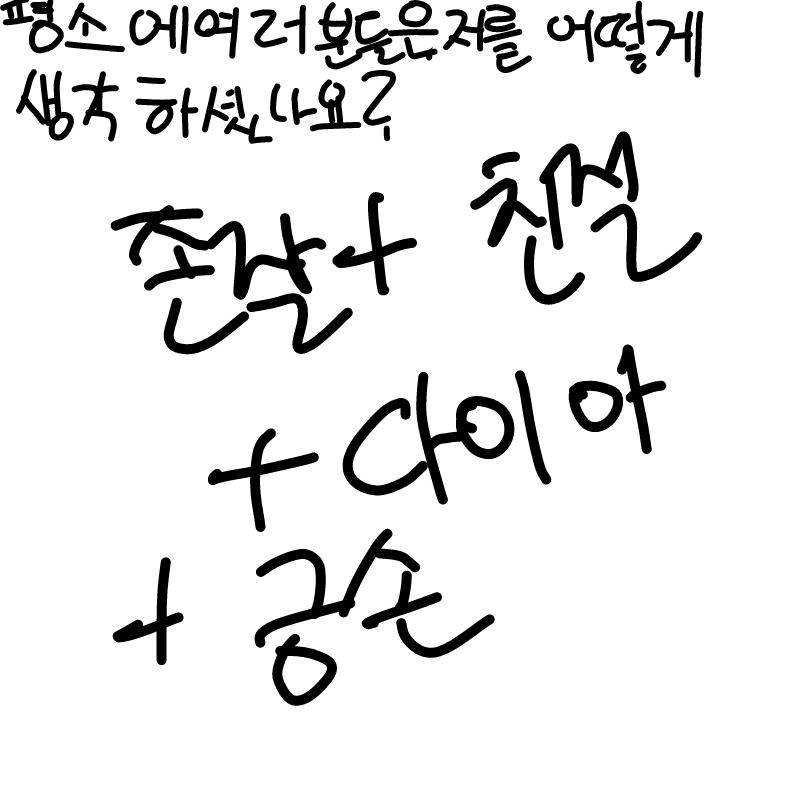 평소에여러분들은저를 어떻게
생각 하셨나요?
존잘+ 친절
+ 다이아
+ 공손